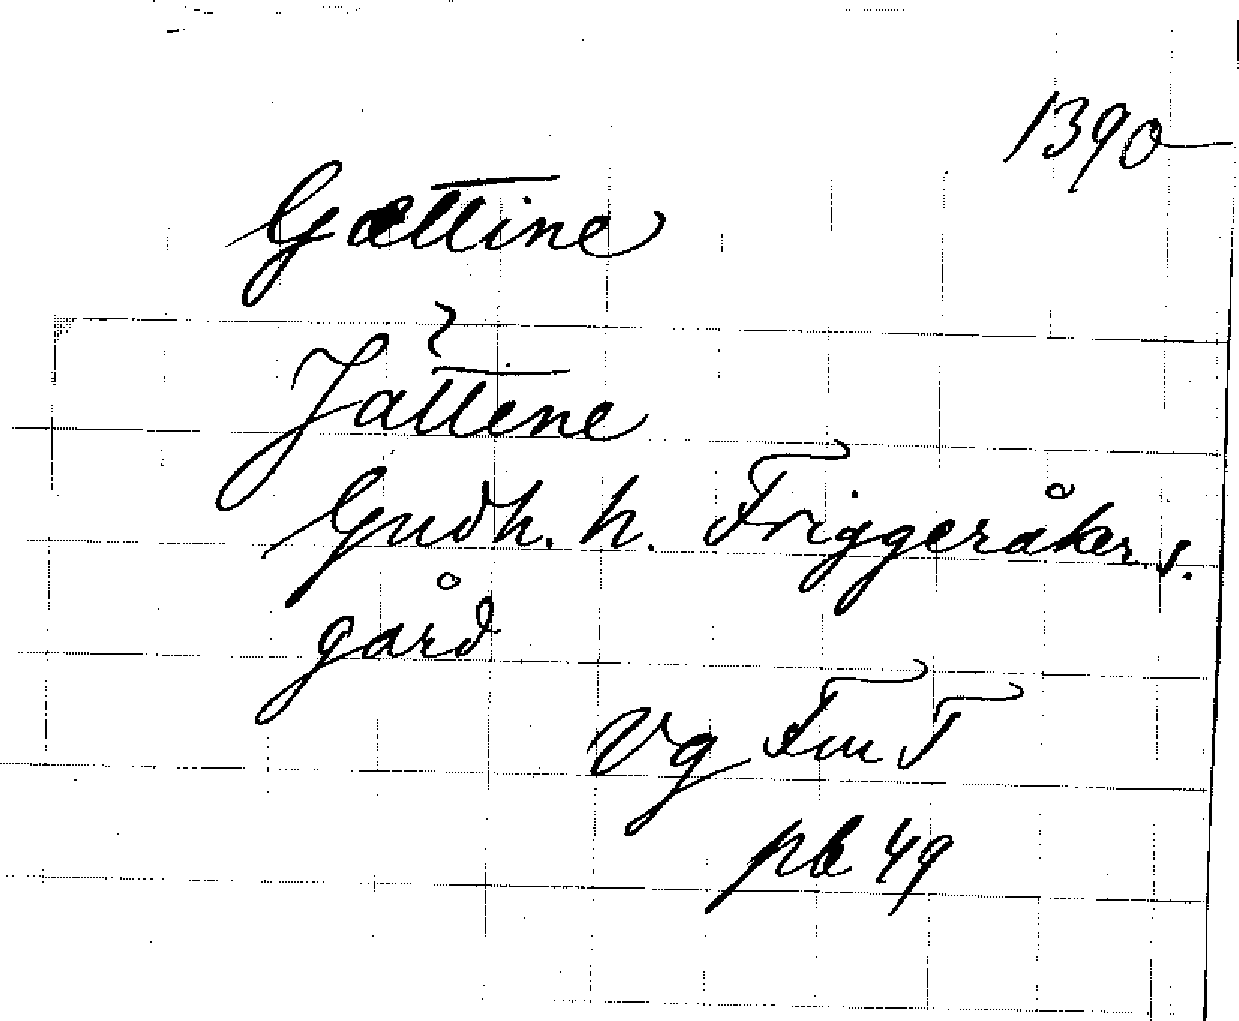 1390
Gættine
?
Jättene
Gudh. h. Friggeråker s.
gård
Vg Fm T
pb 49